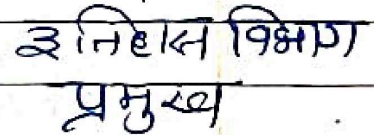 इतिहास विभाग
प्रमुख